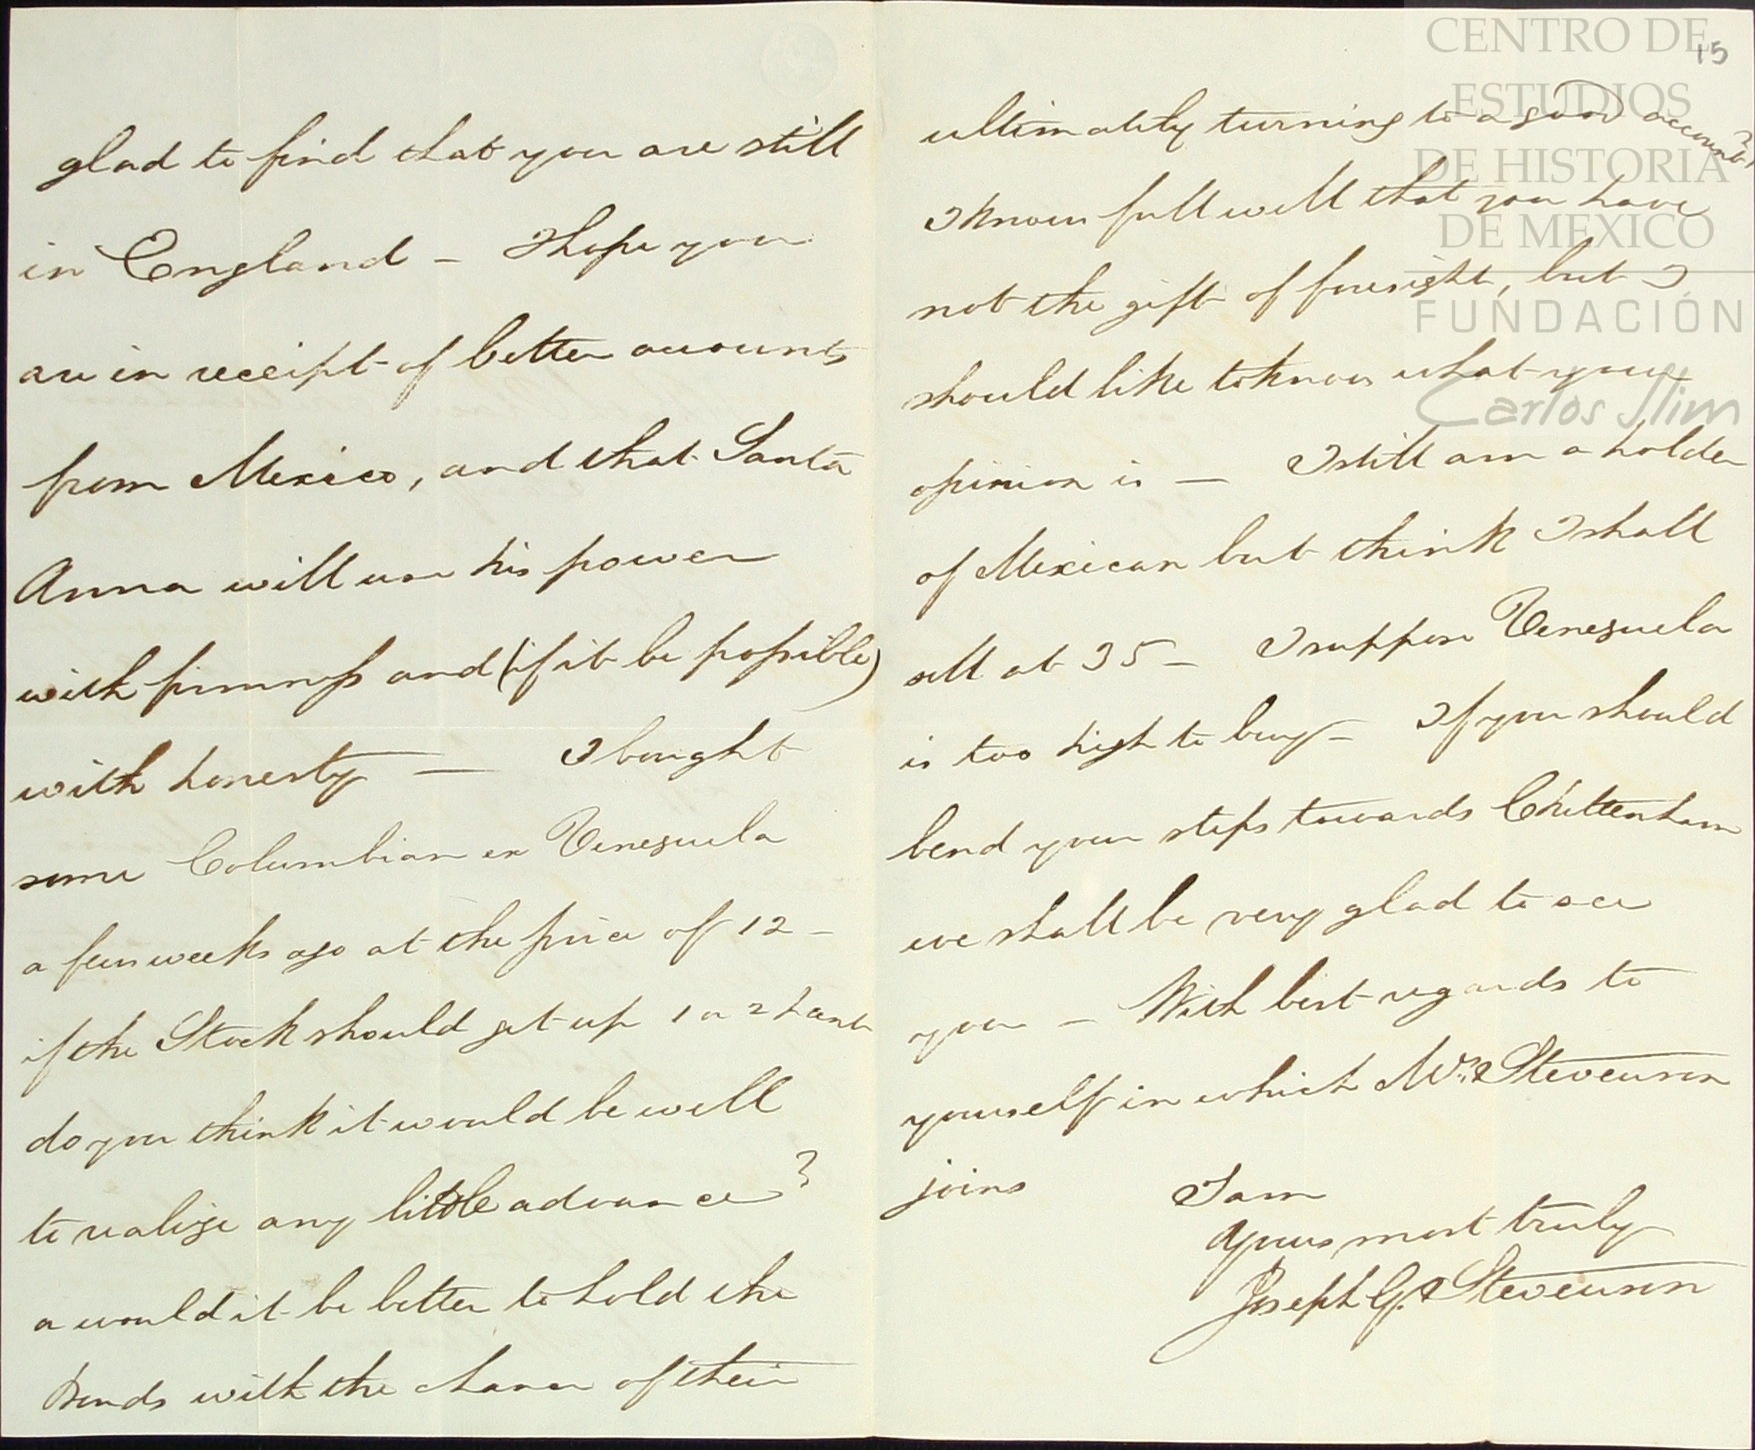 glad to find that you are still
in England – I hope you
are in receipt of better accounts
from Mexico, and that Santa
Anna will use his power
with firmness and (if it be possible)
with honesty — I bought
some Columbian ex Venezuela
a few weeks ago at the price of 12 –
if the Stock should get up 1 or 2 cent
do you think it would be well
to realize any little advance?
or would it be better to hold the
Bonds with the chance of their
15
ultimately turning to a good account?
I know full well that you have
not the gift of foresight, but I
should like to know what your
opinion is — I still am a holder
of Mexican but think I shall
sell at 35 – I suppose Venezuela
is too high to buy – If you should
bend your steps towards Cheltenham
we shall be very glad to see
you – With best regards to
yourself in which Mrs. Stevenson
joins I am
Yours most truly
Joseph G. Stevenson
CENTRO DE
ESTUDIOS
DE HISTORIA
DE MEXICO
FUNDACIÓN
Carlos Slim